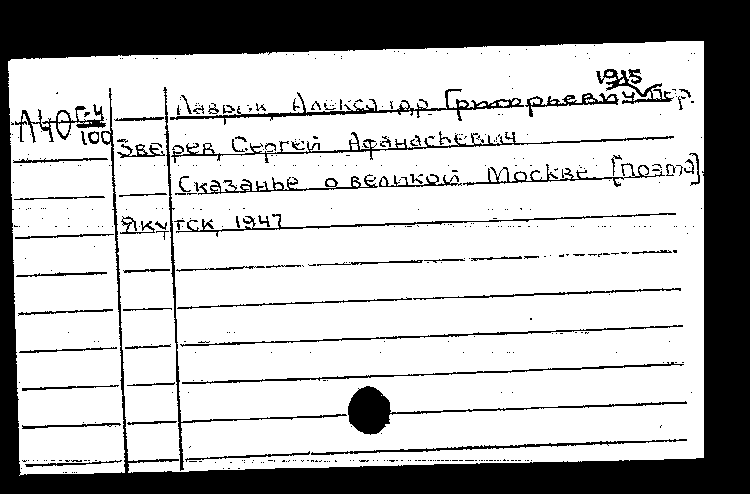 1915
Лаврик, Александр Григорьевич Пер.
Л40 Г-4/100
Зверев, Сергей Афанасьевич
Сказанье о великой Москве. [Поэма].
Якутск, 1947